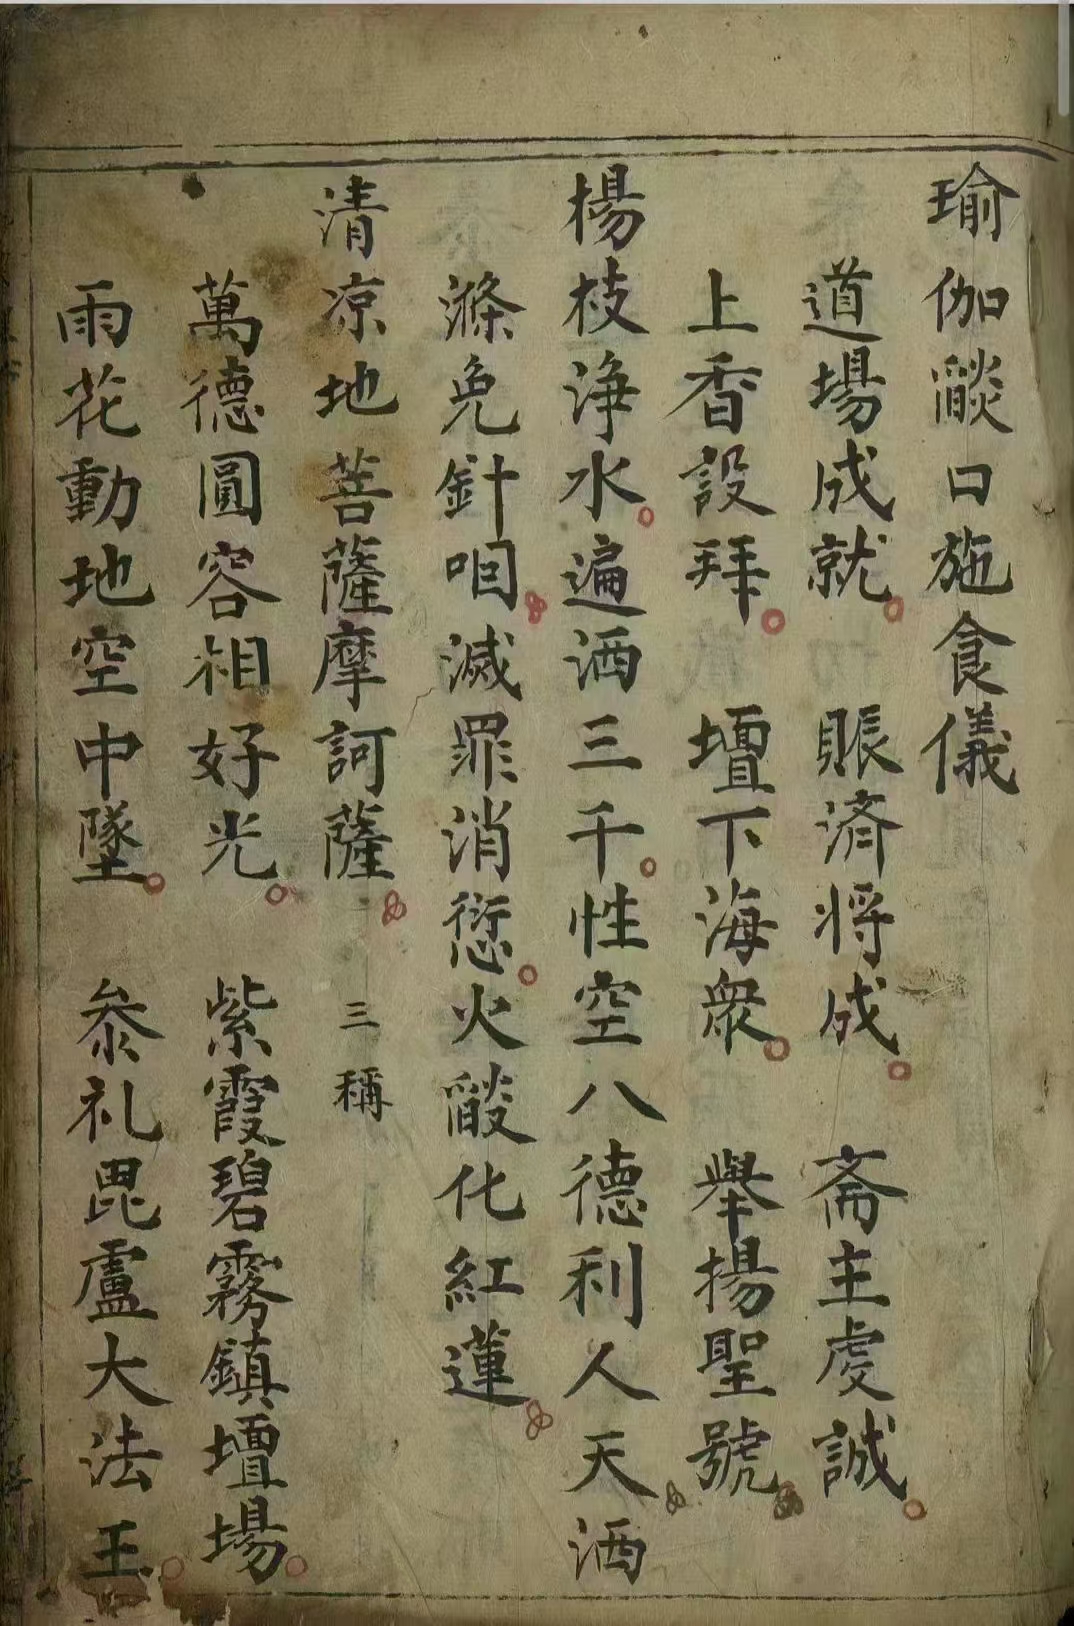 瑜伽㷔口施食儀
道場成就 賬済将成 斋主虔誠
上香設拜 壇下海衆 舉揚聖號
楊枝浄水遍洒三千性空八德利人天洒
滌免針咽滅罪消愆火㷔化紅蓮
清凉地菩薩摩訶薩 三稱
萬德圓容相好光 紫霞碧霧鎮壇場
雨花動地空中墜 叅礼毘盧大法王